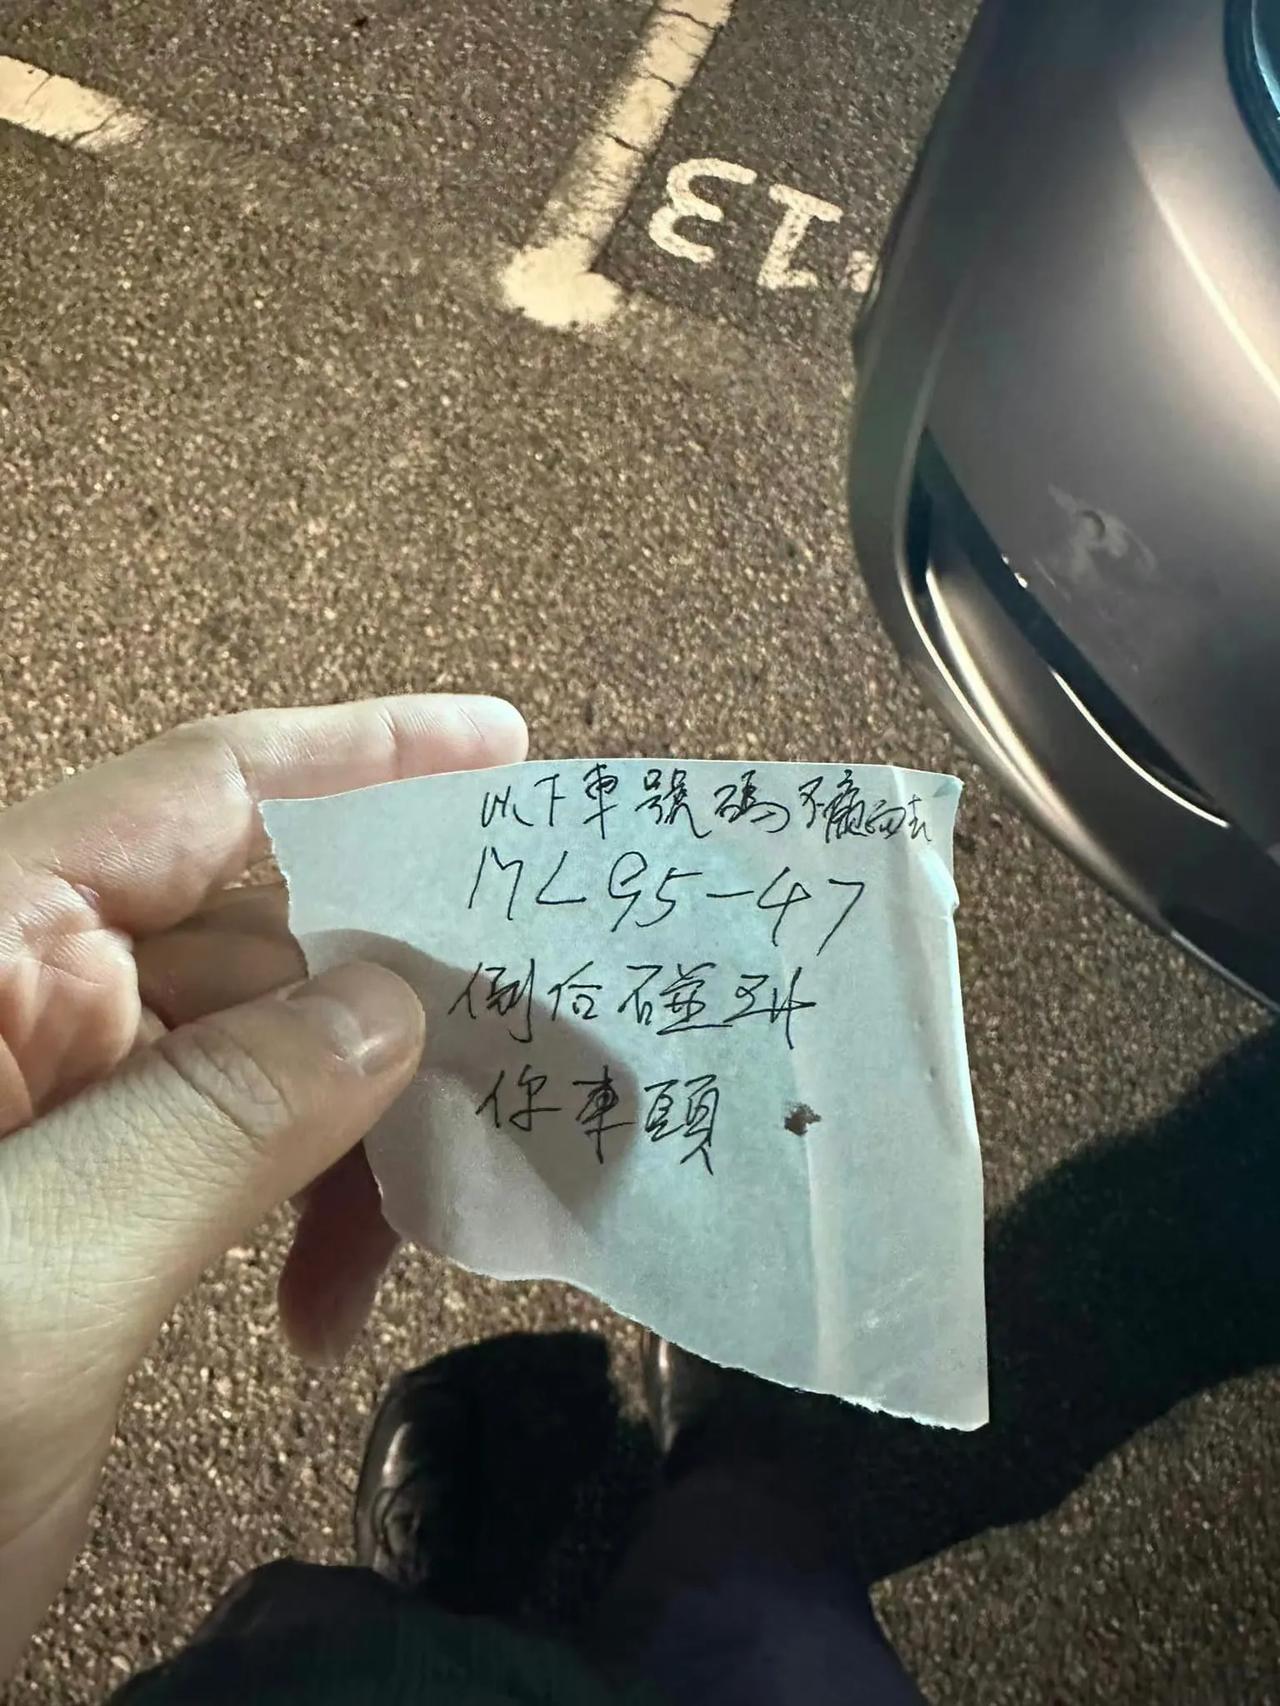 13
以下車號碼不顧而去
ML 95-47
倒后碰到
你車頭